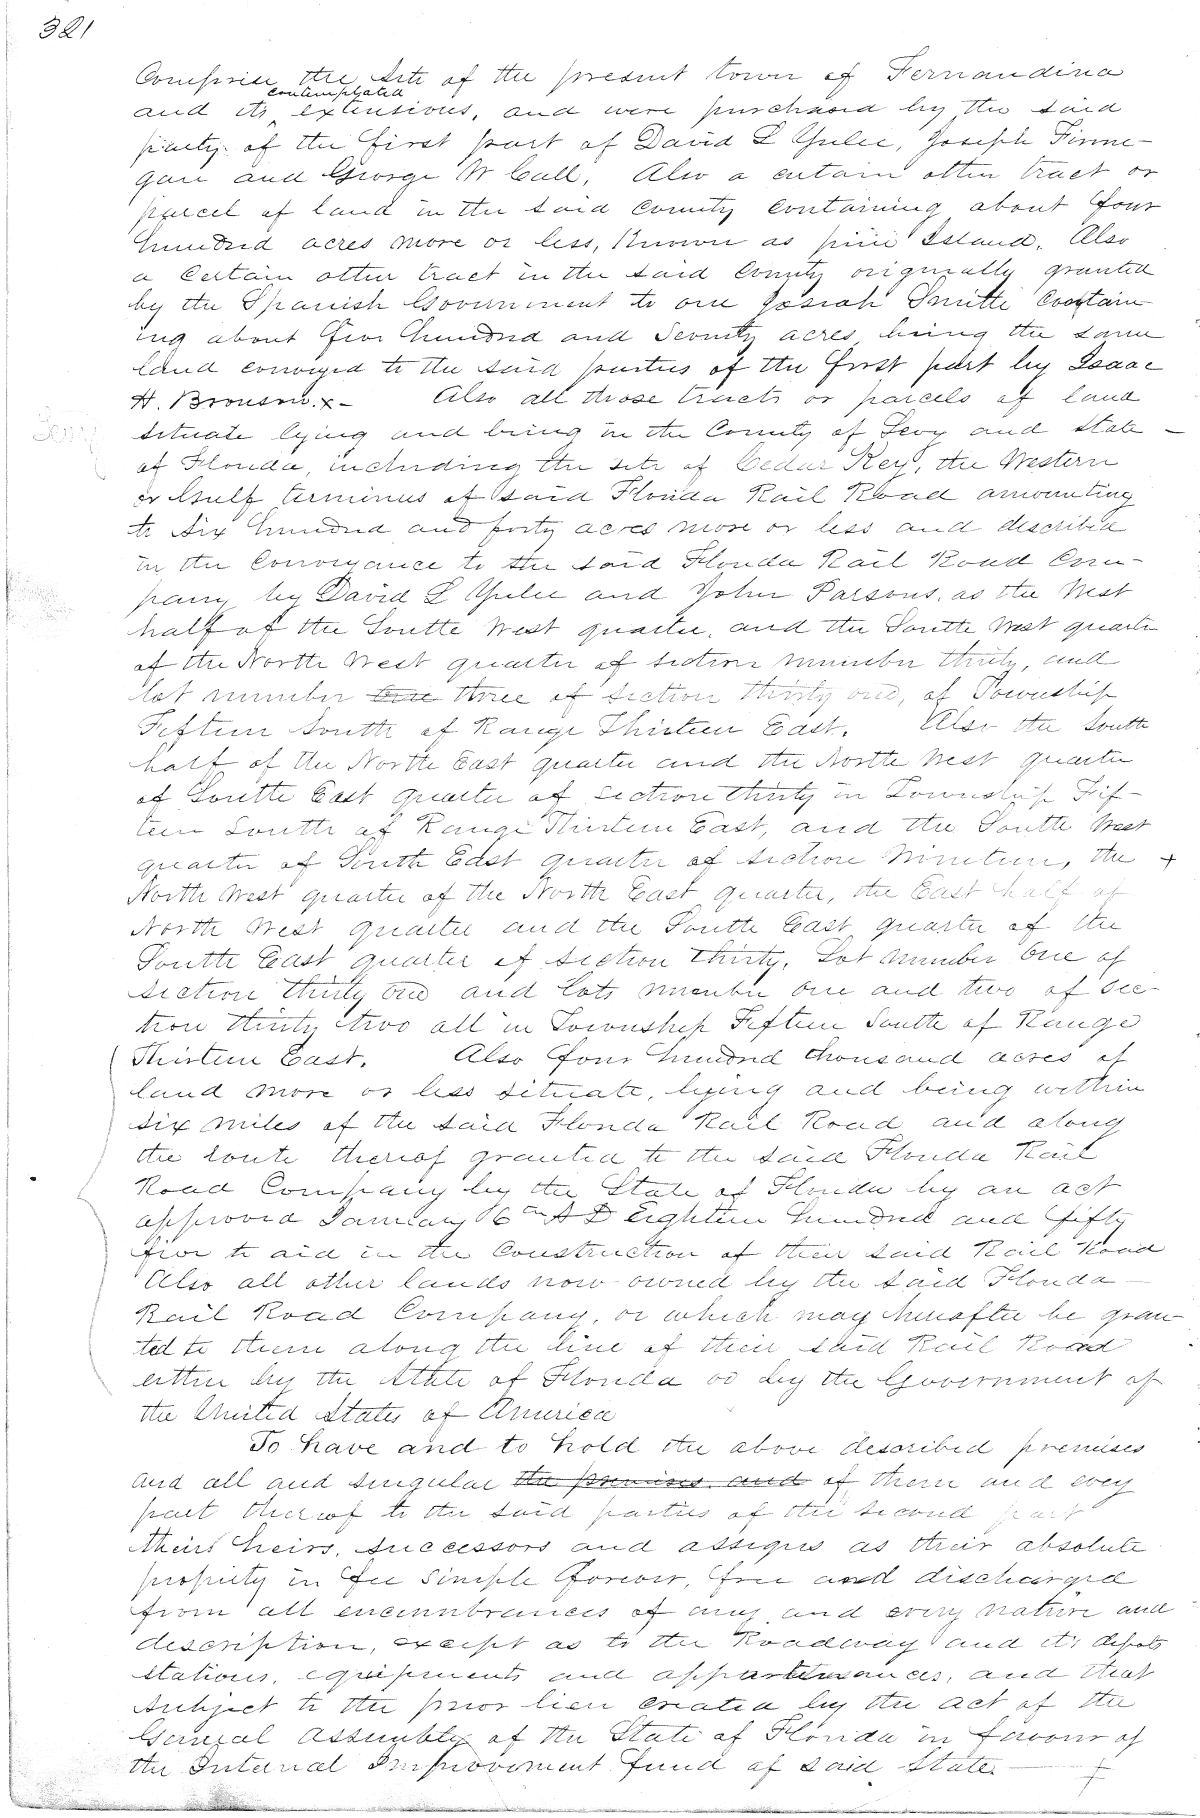 321
Comprise the site of the present town of Fernandina
contemplated
and its ^ extensions, and were purchased by the said
party of the first part of David L Yulee, Joseph Finne-
gan and George W Call, Also a certain other tract or
parcel of land in the said county containing about four
hundred acres more or less, Known as pine Island. Also
a Certain other tract in the said County originally granted
by the Spanish Government to one Josiah Smith Contain
ing about five hundred and seventy acres being the same
land conveyed to the said parties of the first part by Isaac
H. Bronson. x- Also all those tracts or parcels of land
Levy
situate lying and being in the County of Levy and State -
of Florida, including the site of Cedar Key, the Western
or Gulf terminus of said Florida Rail Road amounting
to Six hundred and forty acres more or less and described
in the Conveyance to the said Florida Rail Road Com-
pany by David L Yulee and John Parsons, as the West
half of the South West quarter, and the South West quarter
of the North West quarter of section number thirty, and
lot number three of section thirty one, of Township
Fifteen South of Range Thirteen East. Also the South
half of the North East quarter and the North West quarter
of South East quarter of section thirty in Township Fif-
teen South of Range Thirteen East, and the South West
quarter of South East quarter of section Nineteen, the +
North West quarter of the North East quarter, the East half of
North West quarter and the South East quarter of the
South East quarter of section thirty, Lot number One of
section thirty one and lots number one and two of sec-
tion thirty two all in Township Fifteen South of Range
Thirteen East. Also four hundred thousand acres of
land more or less situate, lying and being within
six miles of the said Florida Rail Road and along
the route thereof granted to the said Florida Rail
Road Company by the State of Florida by an act
approved January 6th A D Eighteen hundred and fifty
five to aid in the Construction of their said Rail Road
Also all other lands now owned by the said Florida -
Rail Road Company, or which may hereafter be gran-
ted to them along the line of their said Rail Road
either by the State of Florida or by the Government of
the United States of America
To have and to hold the above described premises
and all and singular the premises and of them and every
part thereof to the said parties of the second part
their heirs, successors and assigns as their absolute
property in fee simple forever, free and discharged
from all encumbrances of any and every nature and
description, except as to the Roadway and its depots
stations, equipments and appurtenances, and that
subject to the prior lien created by the act of the
General Assembly of the State of Florida in favour of
the Internal Improvement fund of said State.